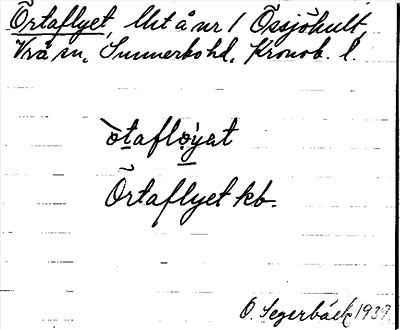 Örtaflyet, Utt å nr 1 Össjöhult,
Vrå sn, Sunnerbo hd, Kronob. l.
òtafløyət
Örtaflyet kb.
O. Segerbäck 1939